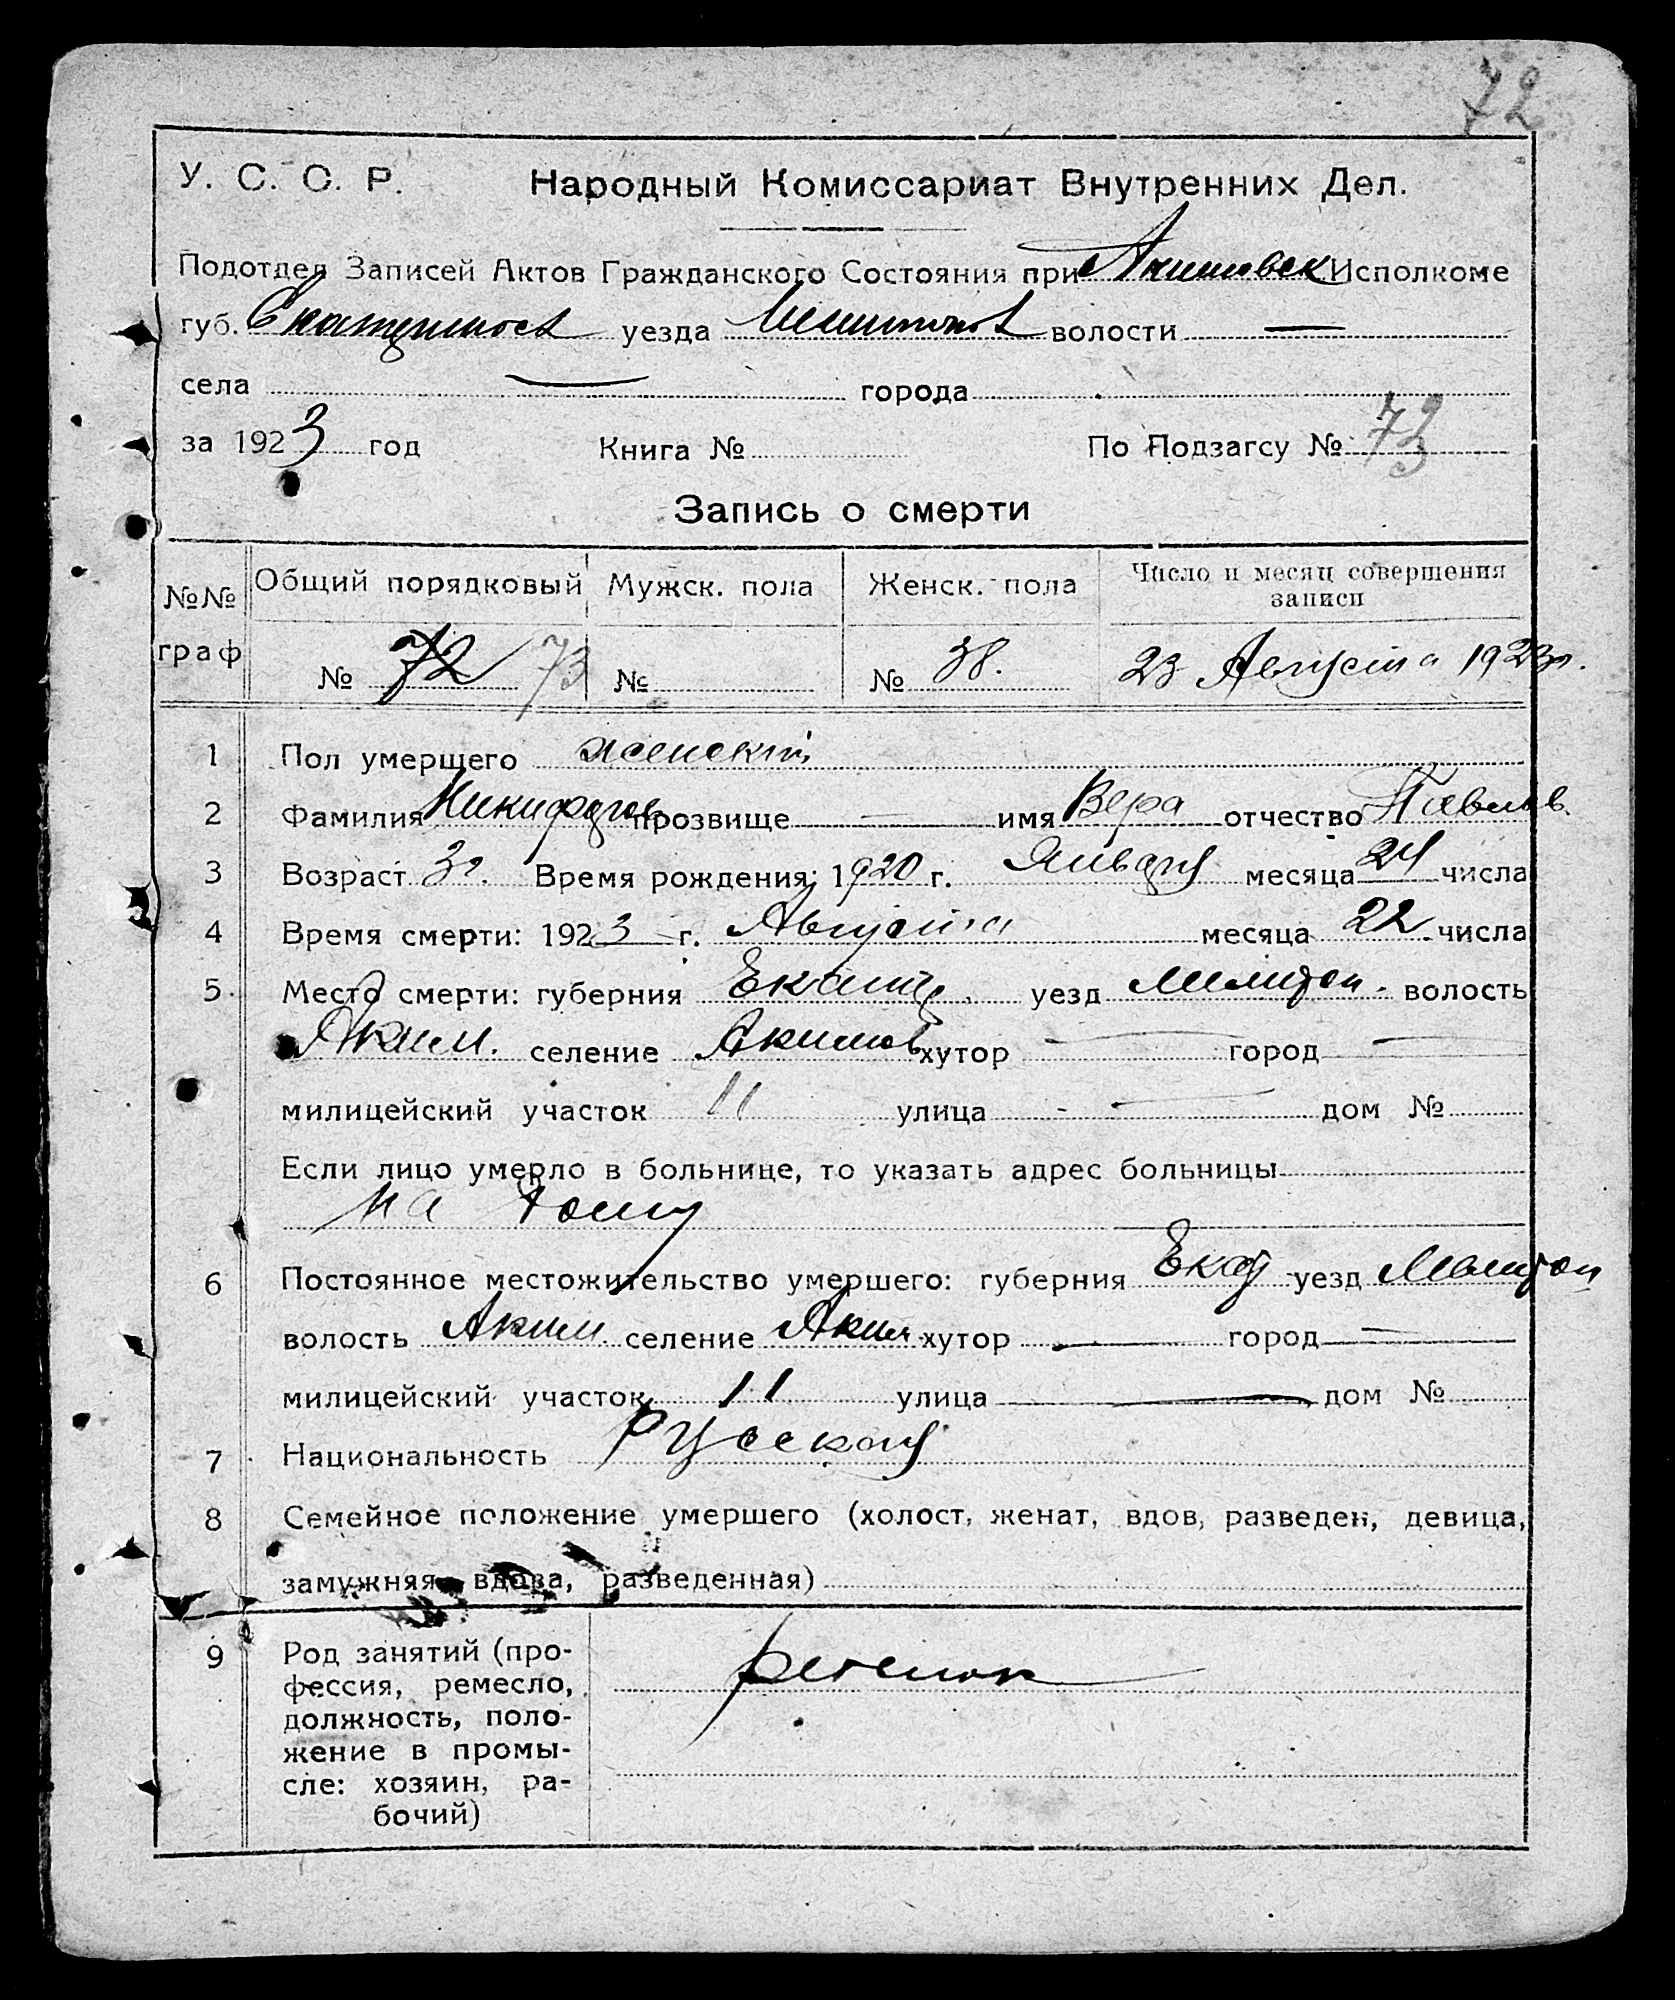 72
У. С. С. Р. Народный Комиссариат Внутренних Дел.
Подотдел Записей Актов Гражданского Состояния при Акимовск Исполкоме
губ. Екатеринослав уезда Мелитопол волости —
села — города
за 1923 год Книга № По Подзагсу № 73
Запись о смерти
№№ граф Общий порядковый Мужск. пола Женск. пола Число и месяц совершения записи
№ 72 73 № № 38. 23 Августа 1923 г.
1 Пол умершего женский
2 Фамилия Никифоров прозвище — имя Вера отчество Павлов.
3 Возраст 3 г. Время рождения: 1920 г. Января месяца 24 числа
4 Время смерти: 1923 г. Августа месяца 22 числа
5 Место смерти: губерния Екатер. уезд Мелитоп. волость
Аким. селение Акимов хутор — город —
милицейский участок 11 улица — дом №
Если лицо умерло в больнице, то указать адрес больницы
на дому
6 Постоянное местожительство умершего: губерния Екат уезд Мелитоп
волость Аким селение Аким хутор — город —
милицейский участок 11 улица — дом №
7 Национальность Русская
8 Семейное положение умершего (холост, женат, вдов, разведен, девица,
замужняя, вдова, разведенная)
9 Род занятий (про-
фессия, ремесло, ребенок
должность, поло-
жение в промы-
сле: хозяин, ра-
бочий)